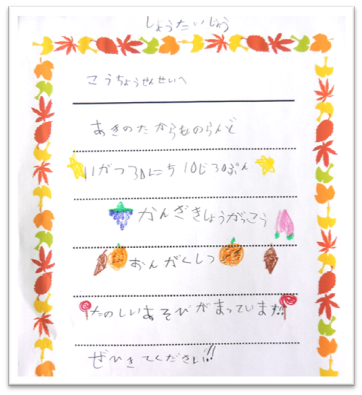 しょうたいじょう
こうちょうせんせいへ
あきのたからものらんど
11がつ30にち10じ30ぷん
かんざきしょうがっこう
おんがくしつ
たのしいあそびがまっています!!
ぜひきてください!!